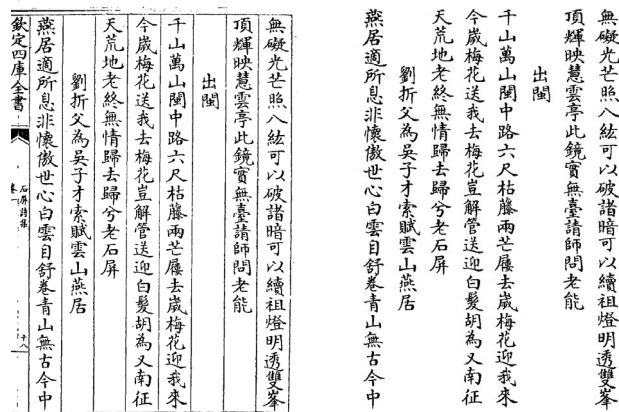 無礙光芒照八紘可以破諸暗可以續祖燈明透雙峯
頂輝映慧雲亭此鏡實無臺請師問老能
出閩
千山萬山閩中路六尺枯藤兩芒屨去歲梅花迎我來
今歲梅花送我去梅花豈解管送迎白髮胡為又南征
天荒地老終無情歸去歸兮老石屏
劉折父為吳子才索賦雲山燕居
燕居適所息非懷傲世心白雲自舒卷青山無古今中
欽定四庫全書
石屏詩集
卷一
十八
無礙光芒照八紘可以破諸暗可以續祖燈明透雙峯
頂輝映慧雲亭此鏡實無臺請師問老能
出閩
千山萬山閩中路六尺枯藤兩芒屨去歲梅花迎我來
今歲梅花送我去梅花豈解管送迎白髮胡為又南征
天荒地老終無情歸去歸兮老石屏
劉折父為吳子才索賦雲山燕居
燕居適所息非懷傲世心白雲自舒卷青山無古今中